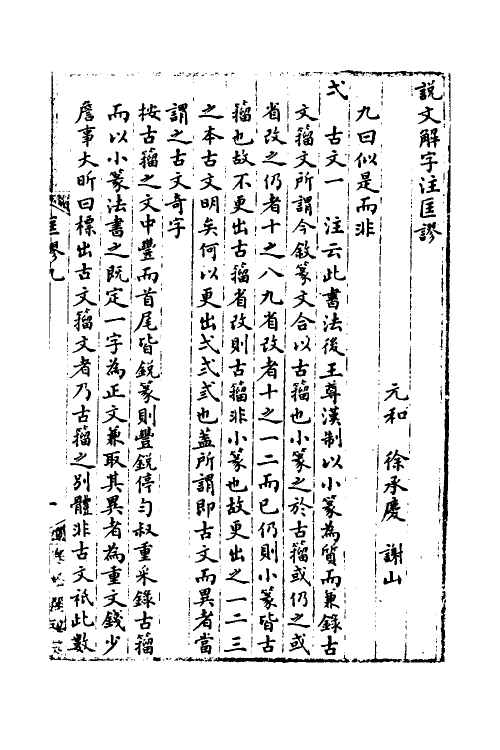 説文解字注匡謬
元和 徐承慶 謝山
九曰似是而非
弌 古文一 注云此書法後王尊漢制以小篆為質而兼錄古
文籀文所謂今敘篆文合以古籀也小篆之於古籀或仍之或
省改之仍者十之八九省改者十之一二而已仍則小篆皆古
籀也故不更出古籀省改則古籀非小篆也故更出之一二三
之本古文明矣何以更出弌弍弎也蓋所謂即古文而異者當
謂之古文奇字
按古籀之文中豐而首尾皆銳篆則豐銳停勻叔重采錄古籀
而以小篆法書之既定一字為正文兼取其異者為重文錢少
詹事大昕曰標出古文籀文者乃古籀之別體非古文祇此數
匡謬九
一